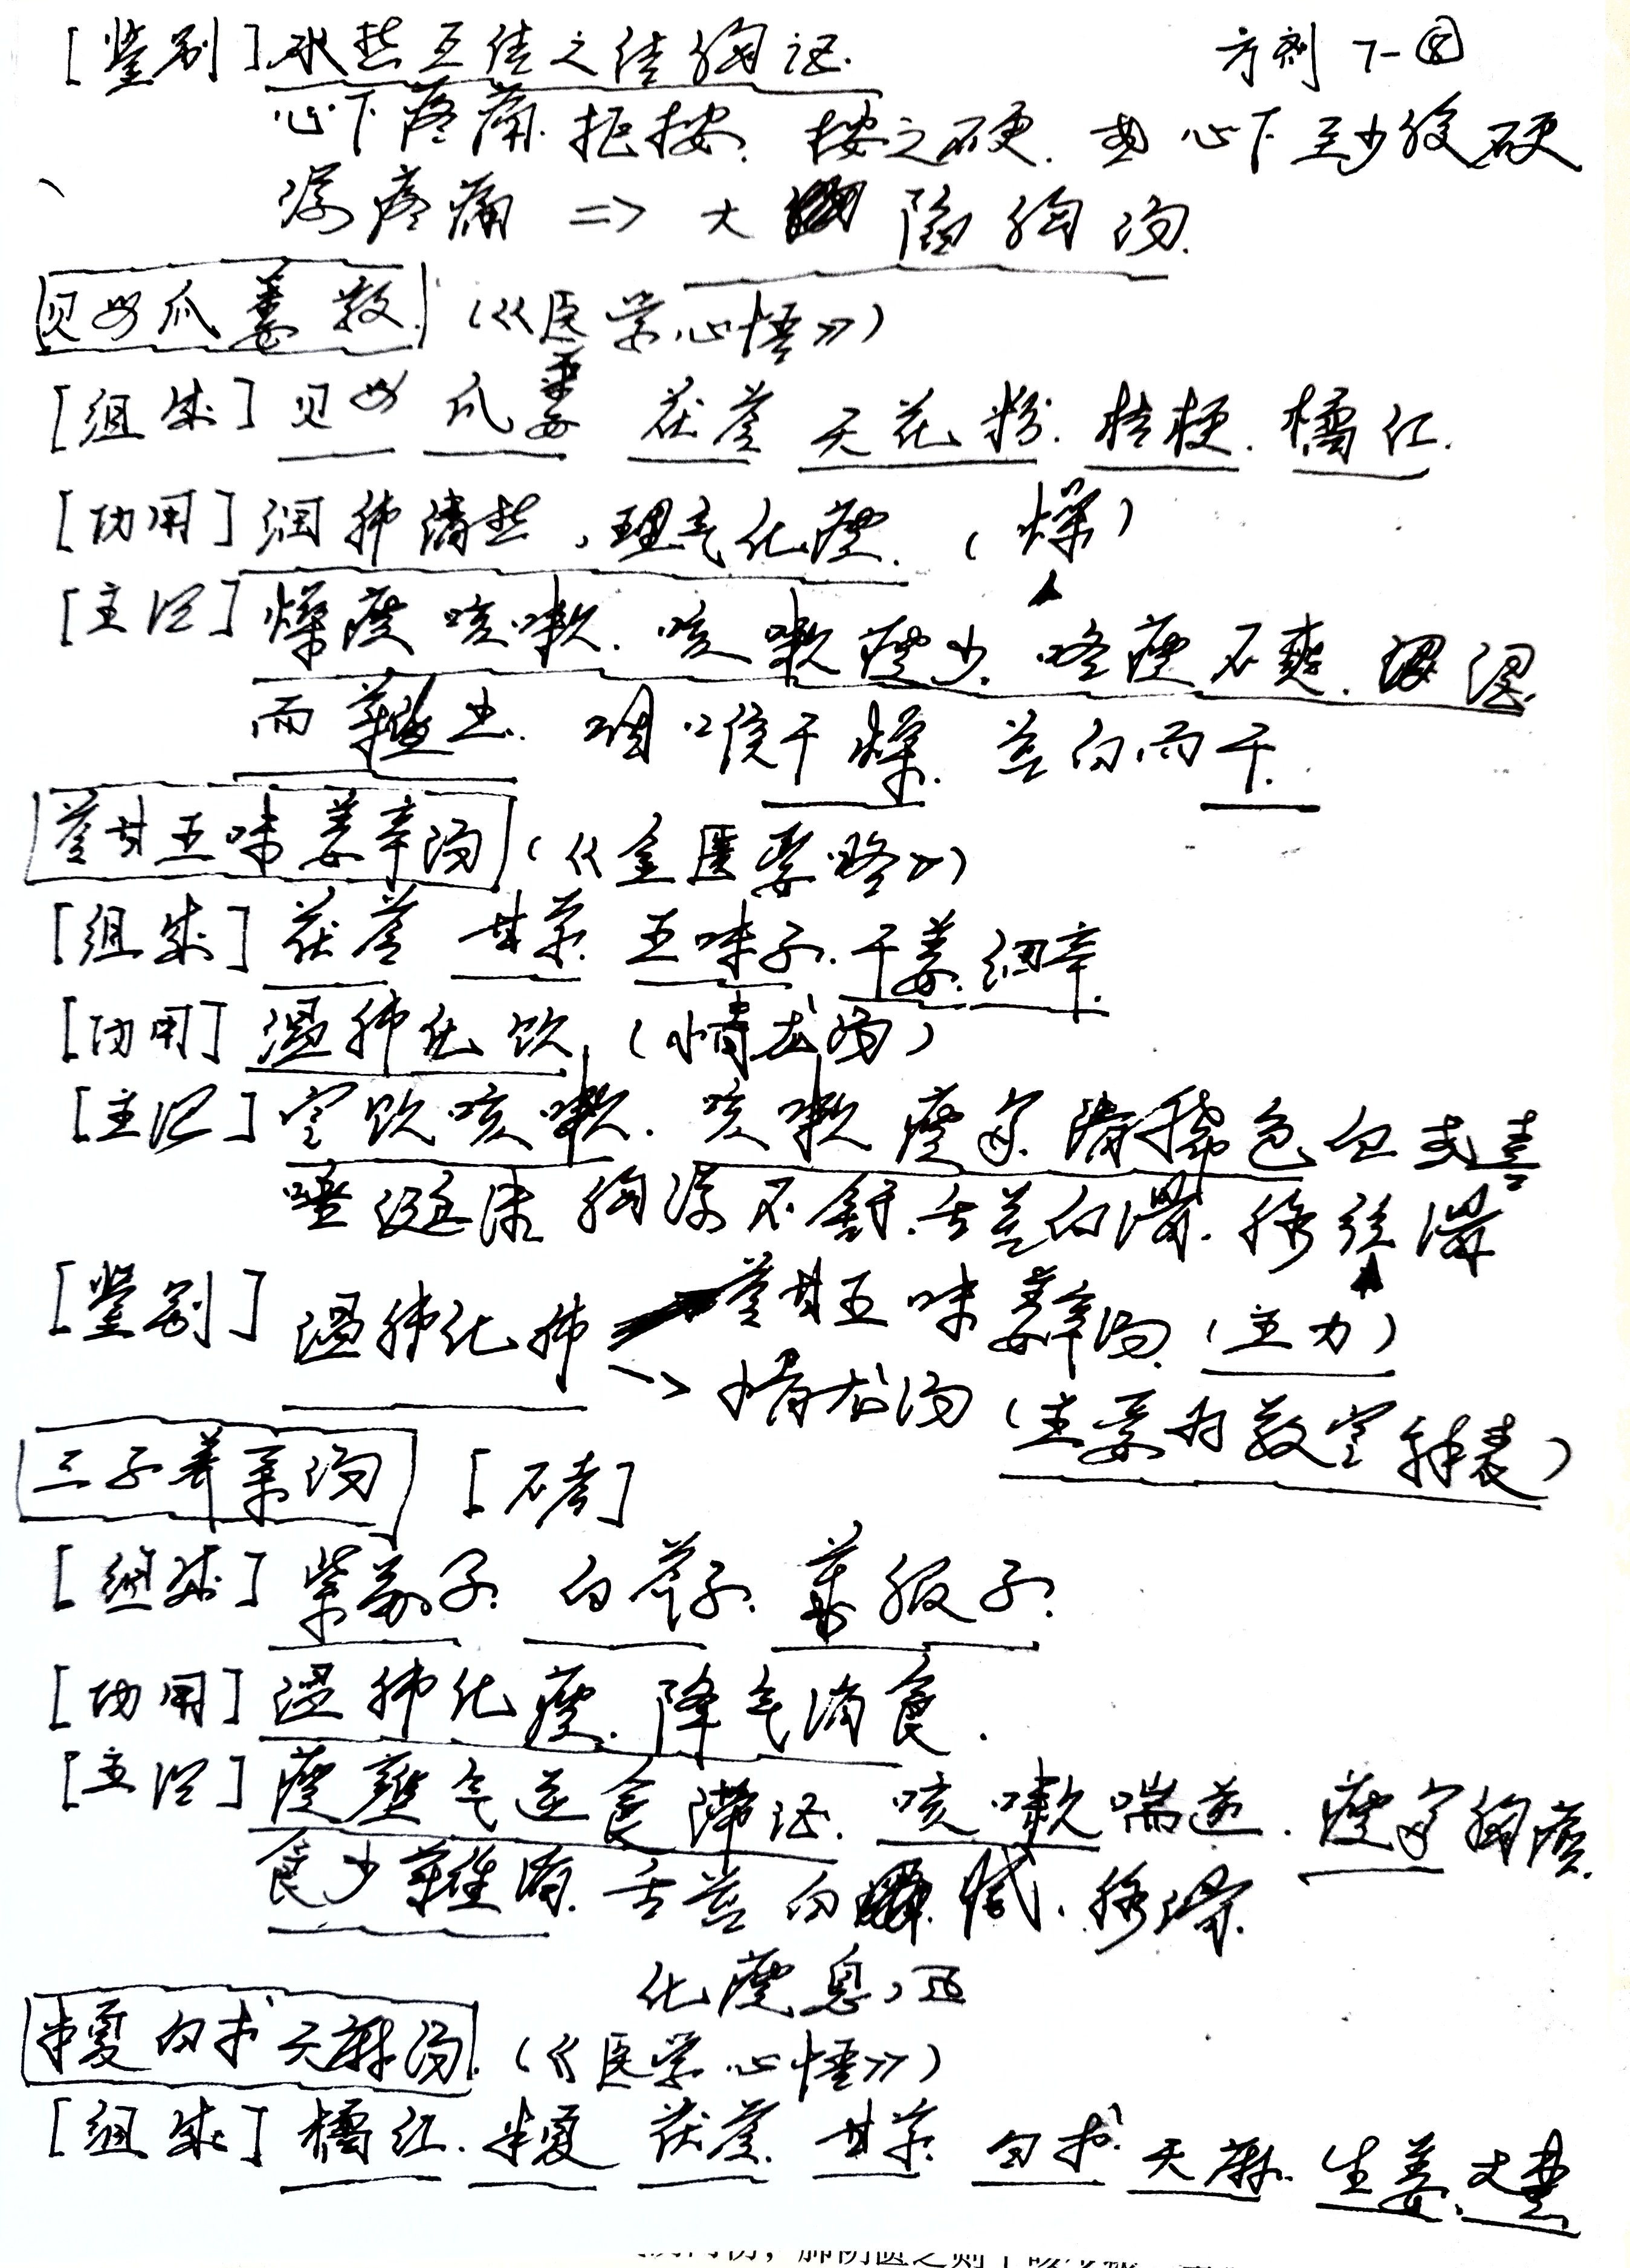 方剂 7-⑧
[鉴别] 水热互结之结胸证.
心下疼痛. 拒按. 按之硬. 或心下至少腹硬
满疼痛 => 大陷胸汤.
贝母瓜蒌散. (《医学心悟》)
[组成] 贝母 瓜蒌 茯苓 天花粉. 桔梗. 橘红.
[功用] 润肺清热, 理气化痰. (燥)
[主治] 燥痰咳嗽. 咳嗽痰少. 咯痰不爽. 涩
而难出. 咽喉干燥. 苔白而干.
苓甘五味姜辛汤 (《金匮要略》)
[组成] 茯苓 甘草. 五味子. 干姜. 细辛.
[功用] 温肺化饮. (小青龙汤)
[主治] 寒饮咳嗽. 咳嗽痰多. 清稀色白或喜
唾涎沫 胸满不舒. 舌苔白滑. 脉弦滑
[鉴别] 温肺化肺 → 苓甘五味姜辛汤. (主力)
→ 小青龙汤 (主要为散寒解表)
三子养亲汤 [不考]
[组成] 紫苏子. 白芥子. 莱服子.
[功用] 温肺化痰. 降气消食.
[主治] 痰壅气逆食滞证. 咳嗽喘逆. 痰多胸痞.
食少难消. 舌苔白腻. 脉滑.
化痰息风
半夏白术天麻汤. (《医学心悟》)
[组成] 橘红. 半夏 茯苓. 甘草. 白术. 天麻. 生姜. 大枣